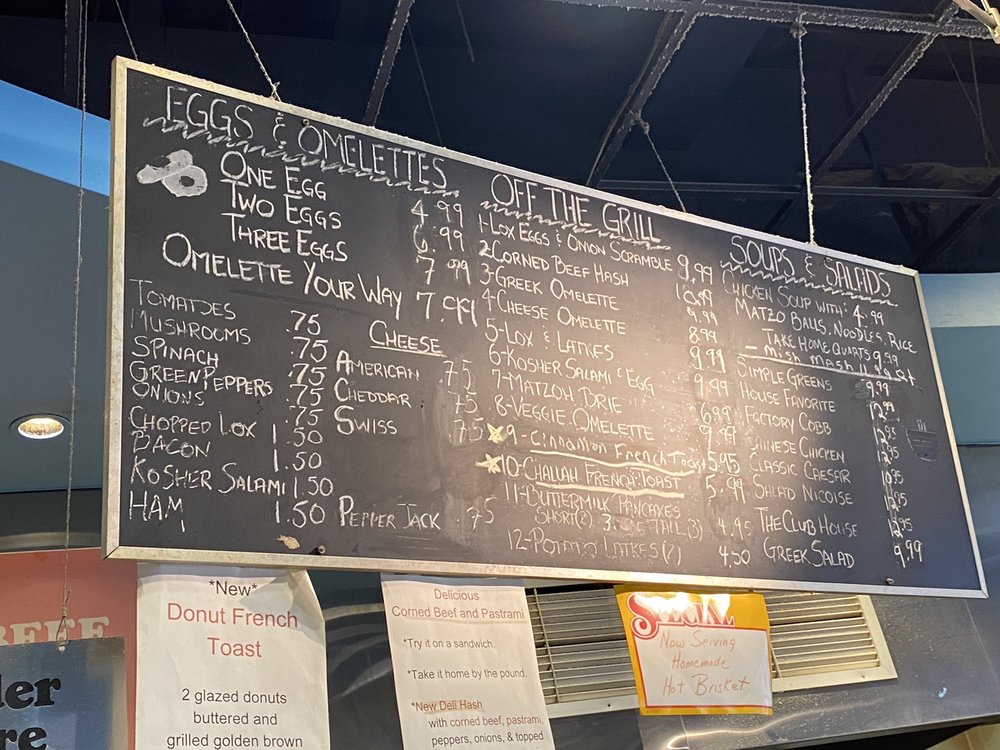 EGGS & OMELETTES
ONE EGG 4.99
TWO EGGS 6.99
THREE EGGS 7.99
OMELETTE YOUR WAY 7.99
TOMATOES .75
MUSHROOMS .75
SPINACH .75
GREEN PEPPERS .75
ONIONS .75
CHOPPED LOX 1.50
BACON 1.50
KOSHER SALAMI 1.50
HAM 1.50
CHEESE
AMERICAN .75
CHEDDAR .75
SWISS .75
PEPPER JACK .75
OFF THE GRILL
1-LOX EGGS & ONION SCRAMBLE 9.99
2-CORNED BEEF HASH 10.99
3-GREEK OMELETTE 9.99
4-CHEESE OMELETTE 8.99
5-LOX & LATKES 9.99
6-KOSHER SALAMI & EGG 9.99
7-MATZOH BRIE 6.99
8-VEGGIE OMELETTE 9.99
9-CINNAMON FRENCH TOAST 5.95
10-CHALLAH FRENCH TOAST 5.99
11-BUTTERMILK PANCAKES
SHORT(2) TALL(3) 4.95
12-POTATO LATKES(2) 4.50
SOUPS & SALADS
CHICKEN SOUP WITH: 4.99
MATZO BALLS, NOODLES, RICE
TAKE HOME QUARTS 9.99
- MISH MASH
SIMPLE GREENS 9.99
HOUSE FAVORITE
FACTORY COBB 12.95
CHINESE CHICKEN 12.95
CLASSIC CAESAR
SALAD NICOISE 12.95
THE CLUB HOUSE 12.95
GREEK SALAD 9.99
BEEF
*New*
Donut French
Toast
2 glazed donuts
buttered and
grilled golden brown
Delicious
Corned Beef and Pastrami
*Try it on a sandwich.
*Take it home by the pound.
*New Deli Hash
with corned beef, pastrami,
peppers, onions, & topped
SPECIAL
Now Serving
Homemade
Hot Brisket